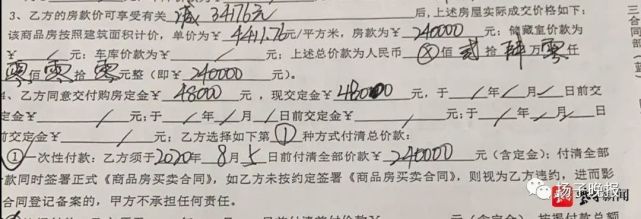 3、乙方的房款价可享受有关 减34176元 后,上述房屋实际成交价格如下:
该商品房按照建筑面积计价,单价为￥4411.76元/平方米,房款为￥240000元;储藏室价款为
￥/元;车库价款为￥/元;上述总价款为人民币ⓧ佰贰拾肆万零仟
零佰零拾零元整(即￥240000元)。
4、乙方同意交付购房定金￥48000元,现交定金￥48000元,于/年/月/日前交
定金￥/元;于/年/月/日前交定金￥/元;于/年/月/日
前交定金￥/元;乙方选择如下第①种方式付清总价款:
①一次性付款:乙方须于2020年8月5日前付清全部价款￥240000元(含定金);付清全部
款同时签署正式《商品房买卖合同》,如乙方未按约定签署《商品房买卖合同》,则视为乙方违约,进而影
合同登记备案的,甲方不承担任何责任。
三
合同
部
扬子晚报